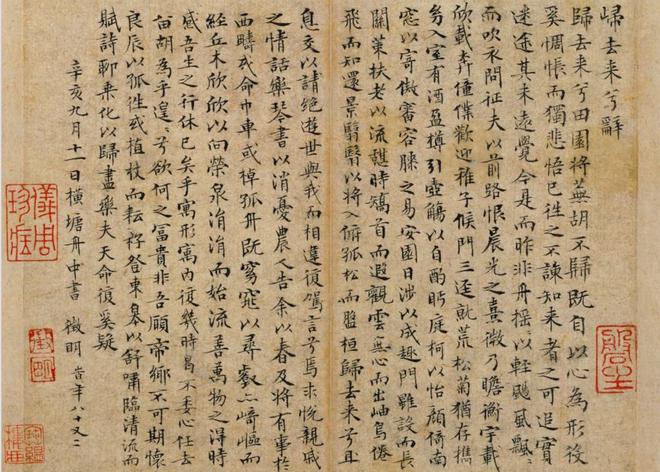 歸去来兮辭
歸去来兮田園將蕪胡不歸既自以心為形役
奚惆悵而獨悲悟已往之不諫知来者之可追實
迷途其未遠覺今是而昨非舟摇〻以輕颺風飄〻
而吹衣問征夫以前路恨晨光之熹微乃瞻衡宇載
欣載奔僮僕歡迎稚子候門三逕就荒松菊猶存攜
幼入室有酒盈樽引壺觴以自酌眄庭柯以怡顏倚南
窓以寄傲審容膝之易安園日涉以成趣門雖設而長
關策扶老以流憩時矯首而遐觀雲無心而出岫鳥倦
飛而知還景翳翳以將入撫孤松而盤桓歸去来兮且
息交以請絕遊世與我而相違復駕言兮焉求悅親戚
之情話樂琴書以消憂農人告余以春及將有事於
西疇或命巾車或棹孤舟既窈窕以尋壑亦崎嶇而
經丘木欣欣以向榮泉涓涓而始流善萬物之得時
感吾生之行休已矣乎寓形寓内復幾時曷不委心任去
留胡為乎遑〻兮欲何之富貴非吾願帝鄉不可期懷
良辰以孤往或植杖而耘耔登東皋以舒嘯臨清流而
賦詩聊乘化以歸盡樂夫天命復奚疑
辛亥九月十一日橫塘舟中書 徵明 時年八十又二
儀周珍藏
徵明